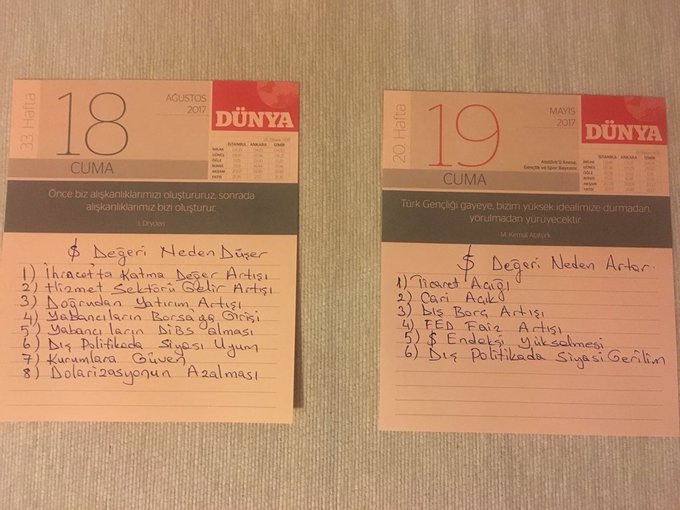 33 Hafta
18
AĞUSTOS
2017
DÜNYA
CUMA
İSTANBUL ANKARA İZMİR
İMSAK
GÜNEŞ
ÖĞLE
İKİNDİ
AKŞAM
YATSI
Önce biz alışkanlıklarımızı oluştururuz, sonrada
alışkanlıklarımız bizi oluşturur.
J. Dryden
$ Değeri Neden Düşer
1) İhracatta Katma Değer Artışı
2) Hizmet Sektörü Gelir Artışı
3) Doğrudan Yatırım Artışı
4) Yabancıların Borsaya Girişi
5) Yabancıların DİBS alması
6) Dış Politikada Siyasi Uyum
7) Kurumlara Güven
8) Dolarizasyonun Azalması
20 Hafta
19
MAYIS
2017
DÜNYA
Atatürk'ü Anma,
Gençlik ve Spor Bayramı
CUMA
İSTANBUL ANKARA İZMİR
İMSAK
GÜNEŞ
ÖĞLE
İKİNDİ
AKŞAM
YATSI
Türk Gençliği gayeye, bizim yüksek idealimize durmadan,
yorulmadan yürüyecektir.
M. Kemal Atatürk
$ Değeri Neden Artar.
1) Ticaret Açığı
2) Cari Açık
3) Dış Borç Artışı
4) FED Faiz Artışı
5) $ Endeksi Yükselmesi
6) Dış Politikada Siyasi Gerilim